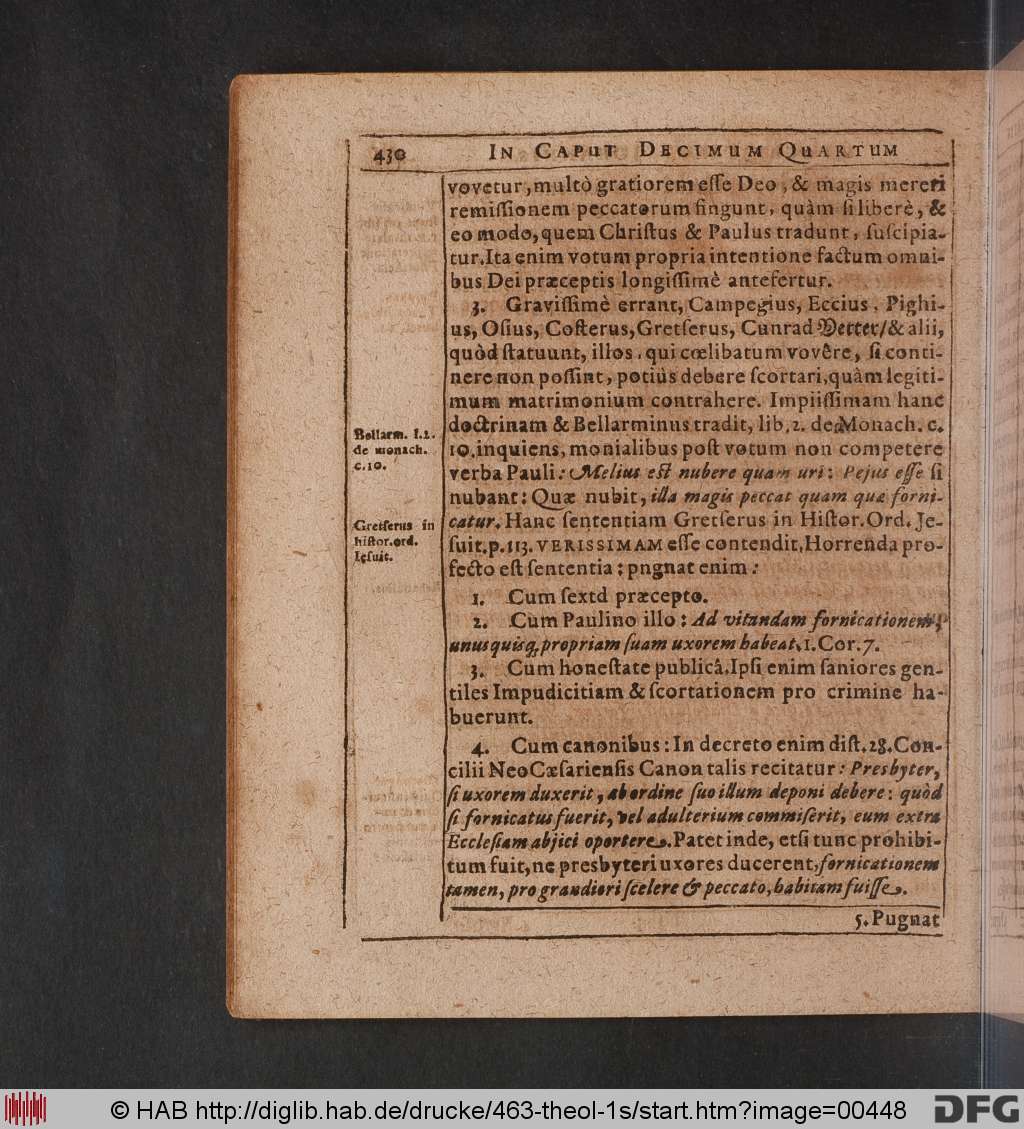 430 IN CAPUT DECIMUM QUARTUM
vovetur, multò gratiorem eſſe Deo, & magis mereri
remiſſionem peccatorum fingunt, quàm ſi liberè, &
eo modo, quem Chriſtus & Paulus tradunt, ſuſcipia-
tur. Ita enim votum propria intentione factum omni-
bus Dei præceptis longiſſimè antefertur.
3. Graviſſimè errant, Campegius, Eccius, Pighi-
us, Oſius, Coſterus, Gretſerus, Cunrad Vetter/ & alii,
quòd ſtatuunt, illos, qui cœlibatum vovêre, ſi conti-
nere non poſſint, potiùs debere ſcortari, quàm legiti-
mum matrimonium contrahere. Impiiſſimam hanc
doctrinam & Bellarminus tradit, lib. 2. de Monach. c.
10. inquiens, monialibus poſt votum non competere
verba Pauli: Melius eſt nubere quam uri: Pejus eſſe ſi
nubant: Quæ nubit, illa magis peccat quam quæ forni-
catur. Hanc ſententiam Gretſerus in Hiſtor. Ord. Je-
ſuit. p. 113. VERISSIMAM eſſe contendit, Horrenda pro-
fecto eſt ſententia: pngnat enim:
1. Cum ſextd præcepto.
2. Cum Paulino illo: Ad vitandam fornicationem,
unusquisq; propriam ſuam uxorem habeat, 1. Cor. 7.
3. Cum honeſtate publicâ. Ipſi enim ſaniores gen-
tiles Impudicitiam & ſcortationem pro crimine ha-
buerunt.
4. Cum canonibus: In decreto enim diſt. 28. Con-
cilii NeoCæſarienſis Canon talis recitatur: Presbyter,
ſi uxorem duxerit, ab ordine ſuo illum deponi debere: quòd
ſi fornicatus fuerit, vel adulterium commiſerit, eum extra
Eccleſiam abjici oportere. Patet inde, etſi tunc prohibi-
tum fuit, ne presbyteri uxores ducerent, fornicationem
tamen, pro grandiori ſcelere & peccato, habitam fuiſſe.
5. Pugnat
Bellarm. l. 2.
de monach.
c. 10.
Gretſerus in
hiſtor. ord.
Ieſuit.
© HAB http://diglib.hab.de/drucke/463-theol-1s/start.htm?image=00448
DFG